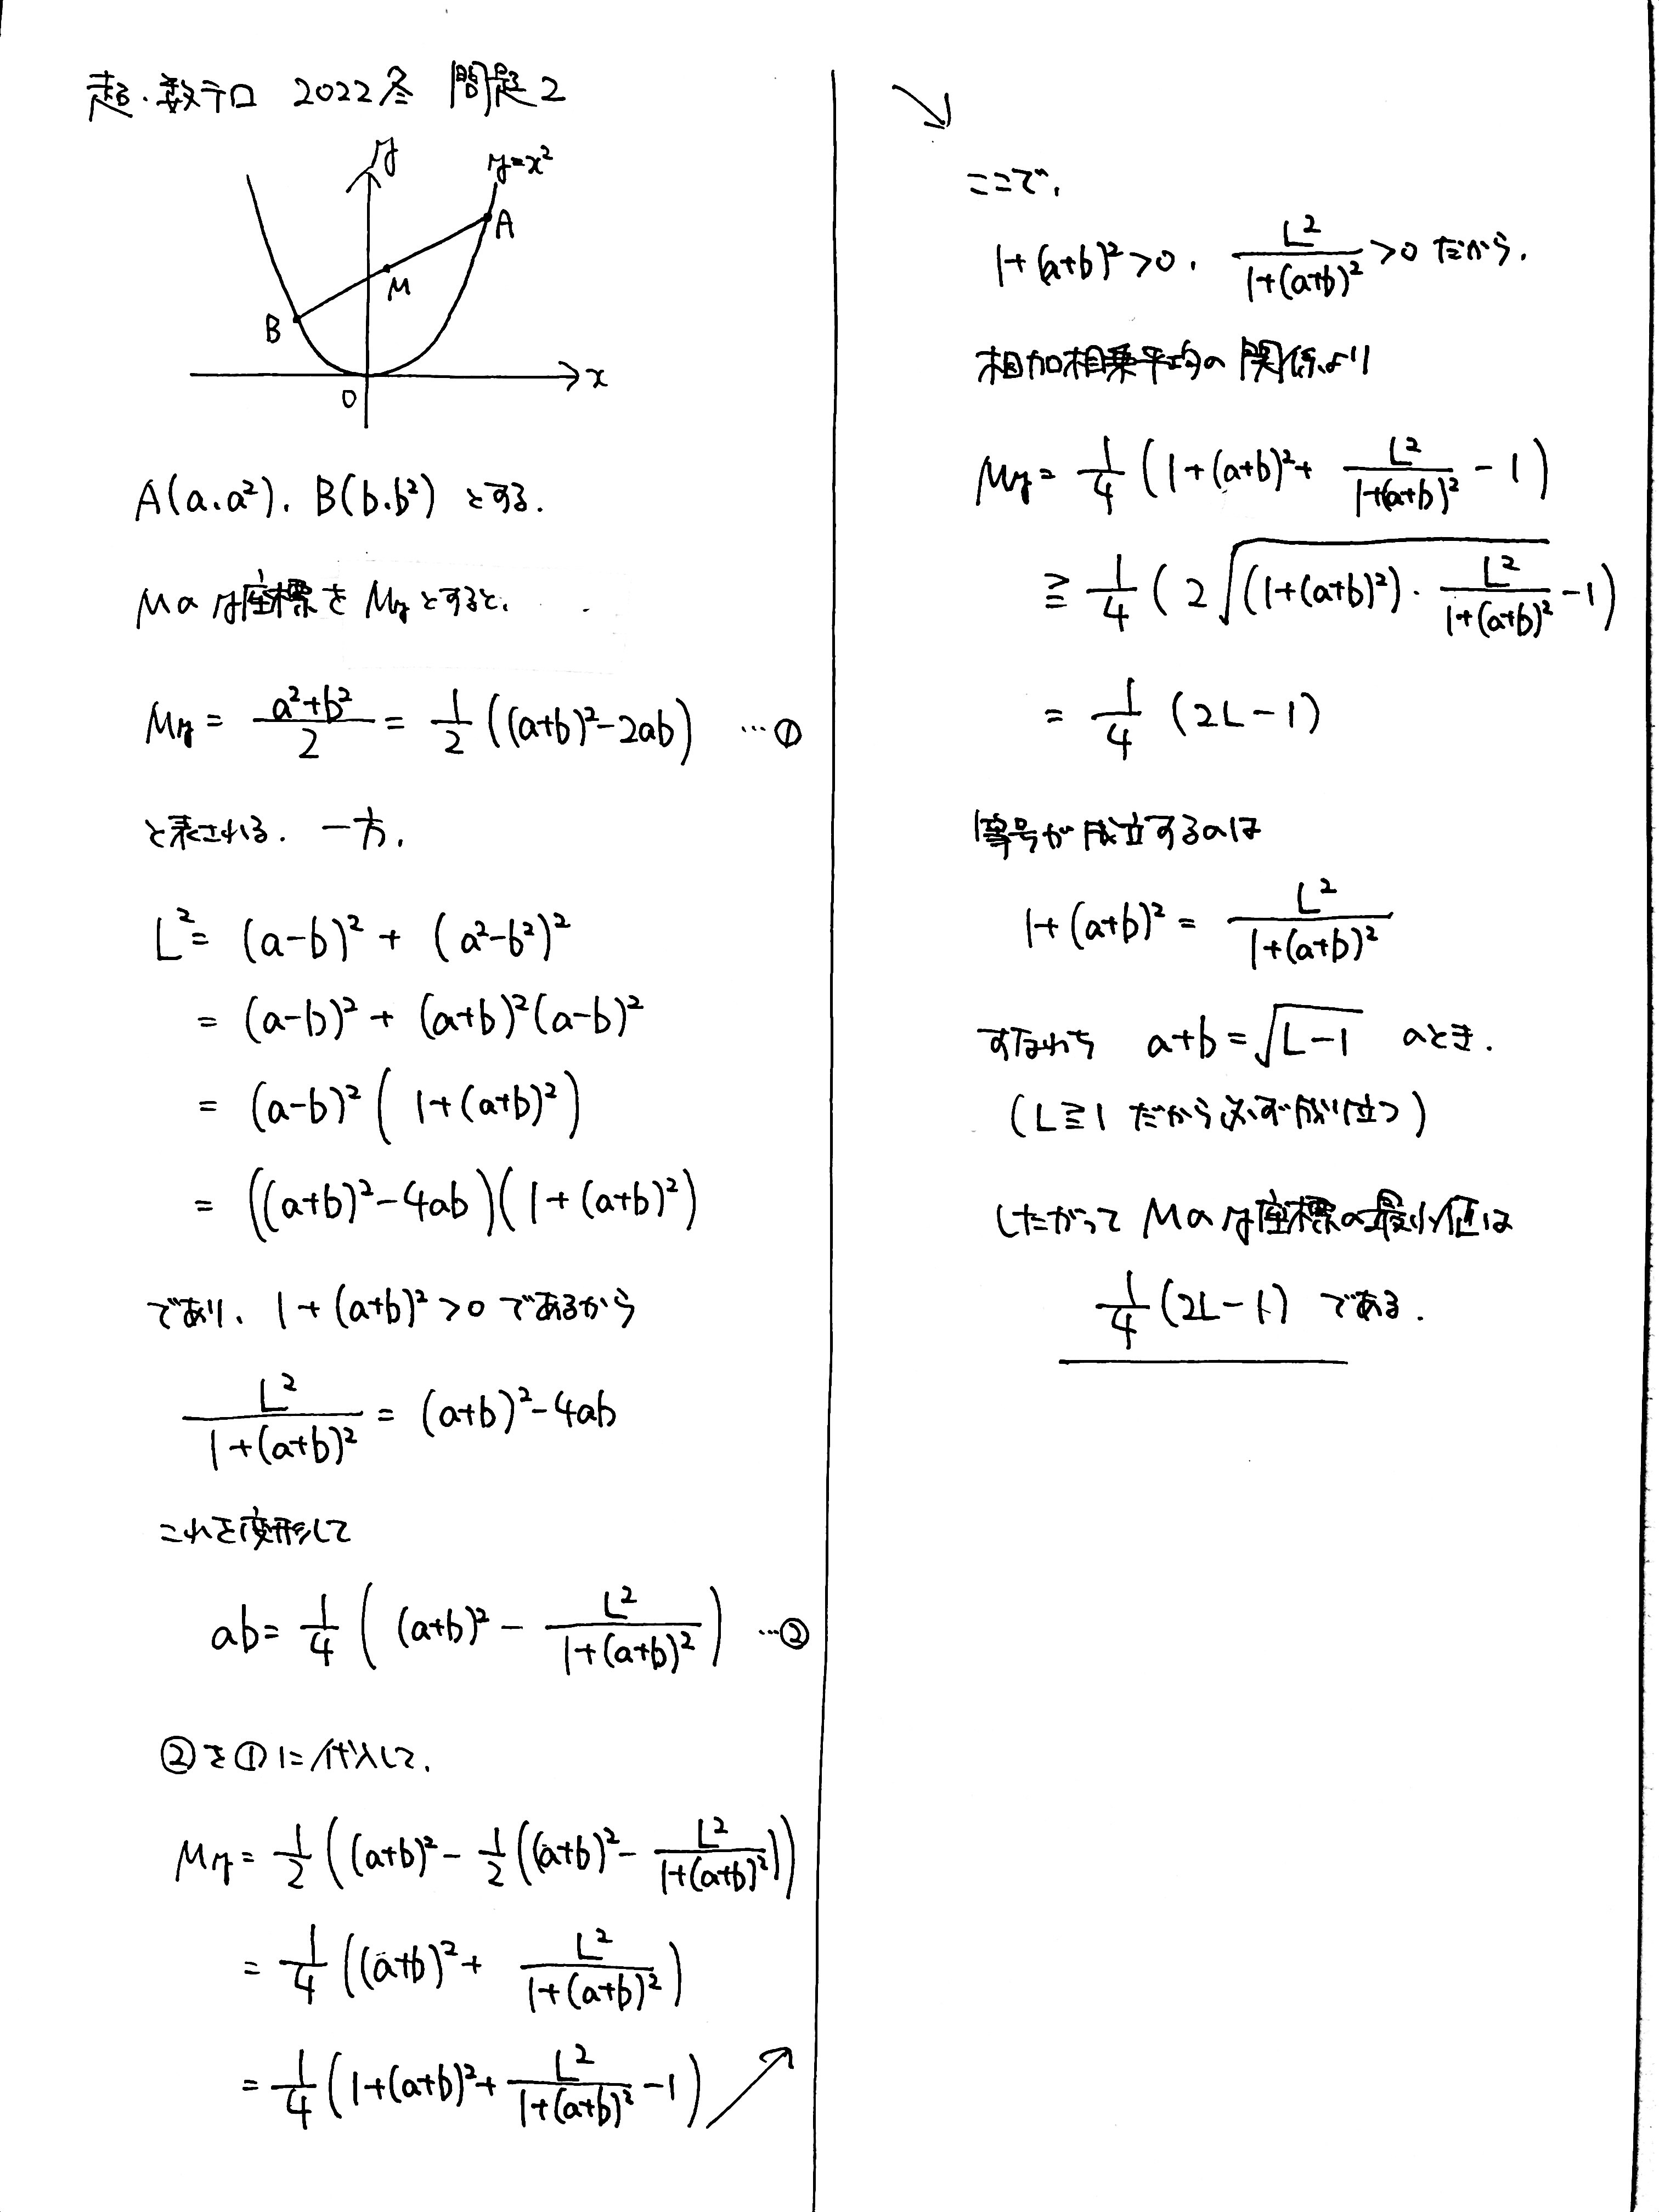 超・数テロ 2022冬 問題2
y
y=x²
A
M
B
O
x
A(a,a²), B(b,b²) とする.
Mのy座標を My とすると,
My = \frac{a²+b²}{2} = \frac{1}{2}((a+b)²-2ab) …①
と表される. 一方,
L² = (a-b)² + (a²-b²)²
= (a-b)² + (a+b)²(a-b)²
= (a-b)²(1+(a+b)²)
= ((a+b)²-4ab)(1+(a+b)²)
であり, 1+(a+b)²>0 であるから
\frac{L²}{1+(a+b)²} = (a+b)²-4ab
これを変形して
ab = \frac{1}{4}((a+b)² - \frac{L²}{1+(a+b)²}) …②
②を①に代入して,
My = \frac{1}{2}((a+b)² - \frac{1}{2}((a+b)² - \frac{L²}{1+(a+b)²}))
= \frac{1}{4}((a+b)² + \frac{L²}{1+(a+b)²})
= \frac{1}{4}(1+(a+b)² + \frac{L²}{1+(a+b)²} - 1)
ここで,
1+(a+b)²>0, \frac{L²}{1+(a+b)²}>0 だから,
相加相乗平均の関係より
My = \frac{1}{4}(1+(a+b)² + \frac{L²}{1+(a+b)²} - 1)
≧ \frac{1}{4}(2\sqrt{(1+(a+b)²)・\frac{L²}{1+(a+b)²}} - 1)
= \frac{1}{4}(2L-1)
等号が成立するのは
1+(a+b)² = \frac{L²}{1+(a+b)²}
すなわち a+b=\sqrt{L-1} のとき.
(L≧1 だから必ず成り立つ)
したがって Mのy座標の最小値は
\frac{1}{4}(2L-1) である.